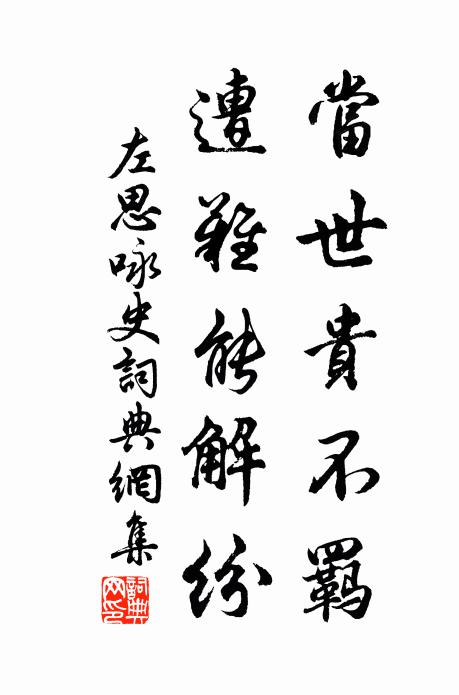 當世貴不羈
遭難能解紛
左思咏史詞典網集
詞典網印